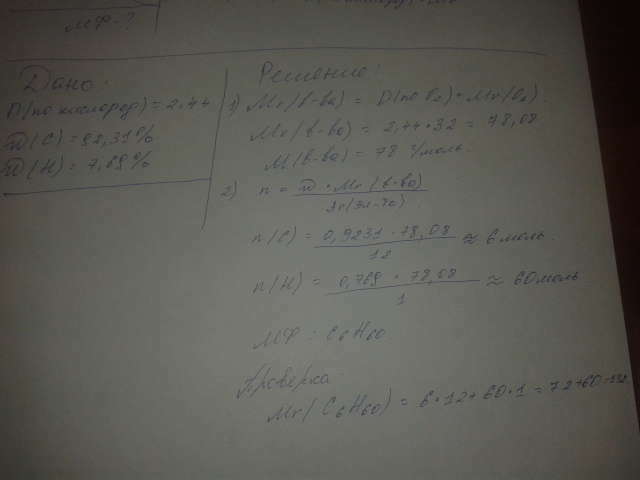 МФ-?
Дано:
D(по кислород) = 2,44
w(C) = 92,31%
w(H) = 7,69%
Решение:
1) Mr(в-ва) = D(по O2) · Mr(O2).
Mr(в-ва) = 2,44 · 32 = 78,08
M(в-ва) = 78 г/моль.
2) n = w · Mr(в-ва) / Ar(эл-та)
n(C) = 0,9231 · 78,08 / 12 ≈ 6 моль.
n(H) = 0,769 · 78,08 / 1 ≈ 60 моль
МФ: C6H60
Проверка:
Mr(C6H60) = 6·12+60·1 = 72+60=132